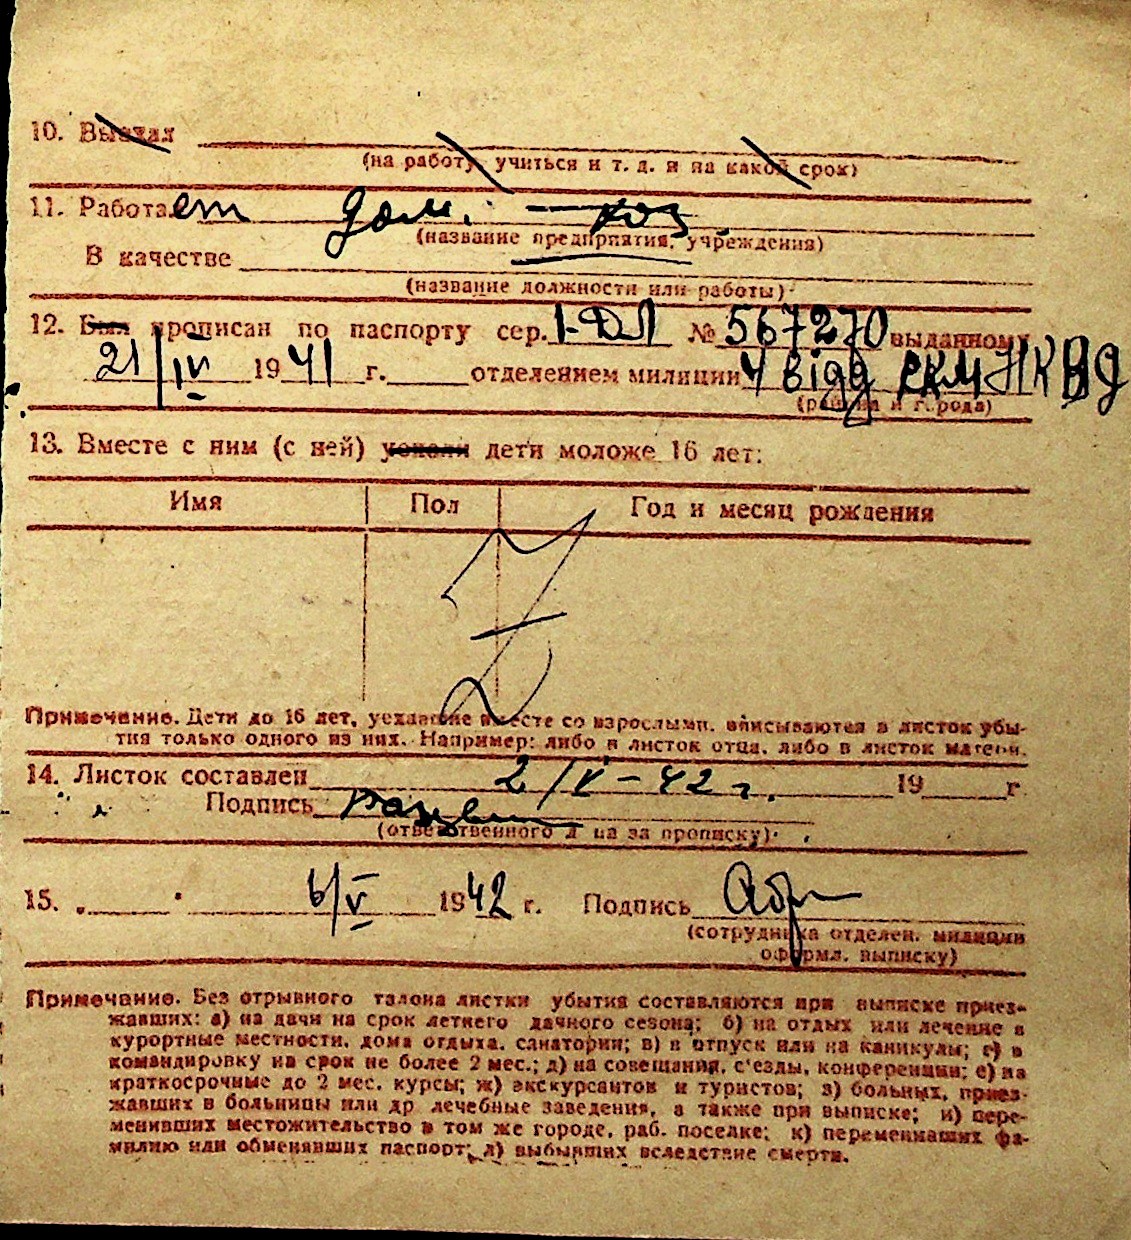 10. Выехал
(на работу, учиться и т. д. и на какой срок)
11. Работает дом. — хоз.
(название предприятия, учреждения)
В качестве
(название должности или работы)
12. Был прописан по паспорту сер. I-ДЛ № 567270 выданному
21/IV 1941 г. отделением милиции 4 відд РКМ НКВД
(района и города)
13. Вместе с ним (с ней) уехали дети моложе 16 лет:
Имя Пол Год и месяц рождения
Z
Примечание. Дети до 16 лет, уехавшие вместе со взрослыми, вписываются в листок убы-
тия только одного из них. Например: либо в листок отца, либо в листок матери.
14. Листок составлен 2/V–42 г. 19 г
Подпись
(ответственного л ца за прописку)
15. „ " 6/V 1942 г. Подпись
(сотрудника отделен. милиции
оформл. выписку)
Примечание. Без отрывного талона листки убытия составляются при выписке приез-
жавших: а) на дачи на срок летнего дачного сезона; б) на отдых или лечение в
курортные местности, дома отдыха, санатории; в) в отпуск или на каникулы; г) в
командировку на срок не более 2 мес.; д) на совещания, с'езды, конференции; е) на
краткосрочные до 2 мес. курсы; ж) экскурсантов и туристов; з) больных, приез-
жавших в больницы или др лечебные заведения, а также при выписке; и) пере-
менивших местожительство в том же городе, раб. поселке; к) переменивших фа-
милию или обменявших паспорт; л) выбывших вследствие смерти.